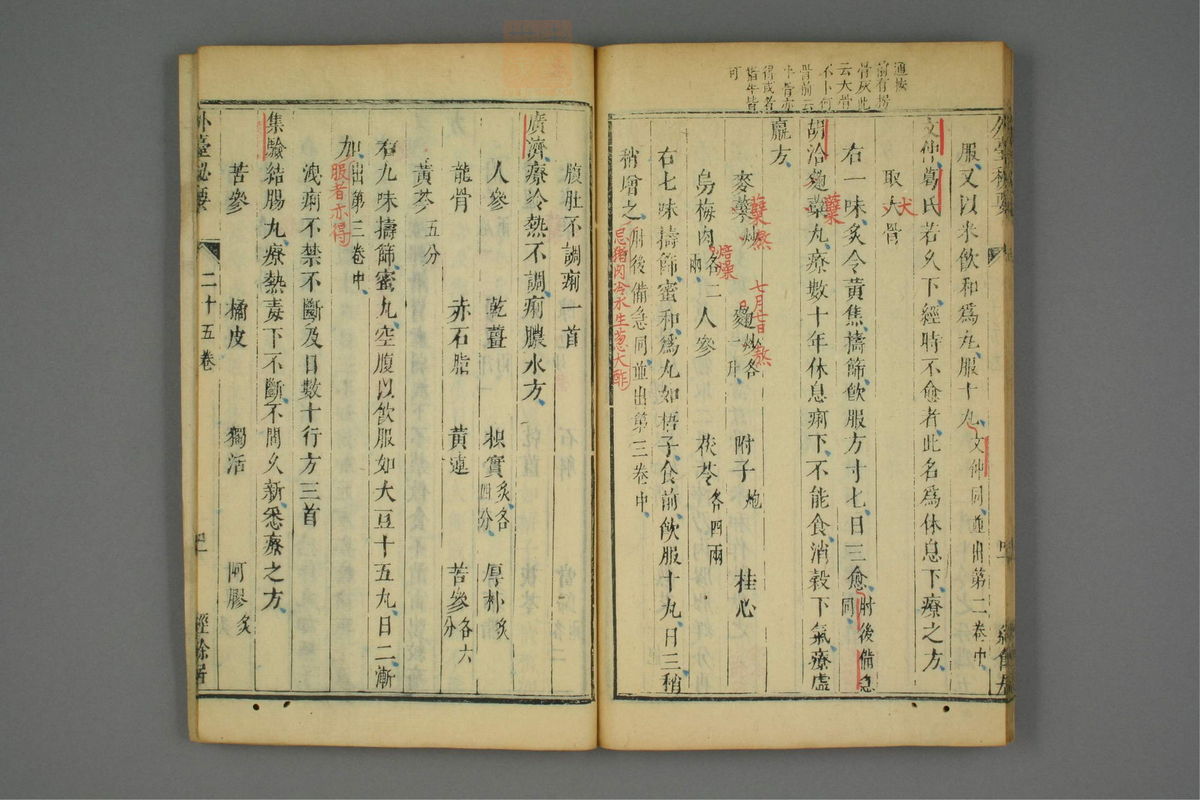 通按
前有撈
骨灰此
云大骨
不卜何
骨前云
牛骨亦
得或各
畜牛皆
可
服又以米飲和為丸服十丸文仲同並出第二卷中
文仲葛氏若久下經時不愈者此名為休息下療之方
取大骨
犬
右一味炙令黃焦擣篩飲服方寸匕日三愈肘後備急同
胡洽麴蘗丸療數十年休息痢下不能食消穀下氣療虛
蘗
羸方
麥蘗炒 麴炒各一升 附子炮 桂心
蘗熬
七月七日
熬
烏梅肉各二兩 人參 茯苓各四兩
焙燥
右七味擣篩蜜和為丸如梧子食前飲服十丸日三稍
稍增之肘後備急同並出第三卷中
忌豬肉冷水生蔥大酢
外臺秘要
二十五卷
經餘居
腹肚不調痢一首
廣濟療冷熱不調痢膿水方
人參 乾薑 枳實炙各四分 厚朴炙
龍骨 赤石脂 黃連 苦參各六分
黃芩五分
右九味擣篩蜜丸空腹以飲服如大豆十五丸日二漸
加出第三卷中
服者亦得
洩痢不禁不斷及日數十行方三首
集驗結腸丸療熱毒下不斷不問久新悉療之方
苦參 橘皮 獨活 阿膠炙
外臺秘要
二十五卷
經餘居